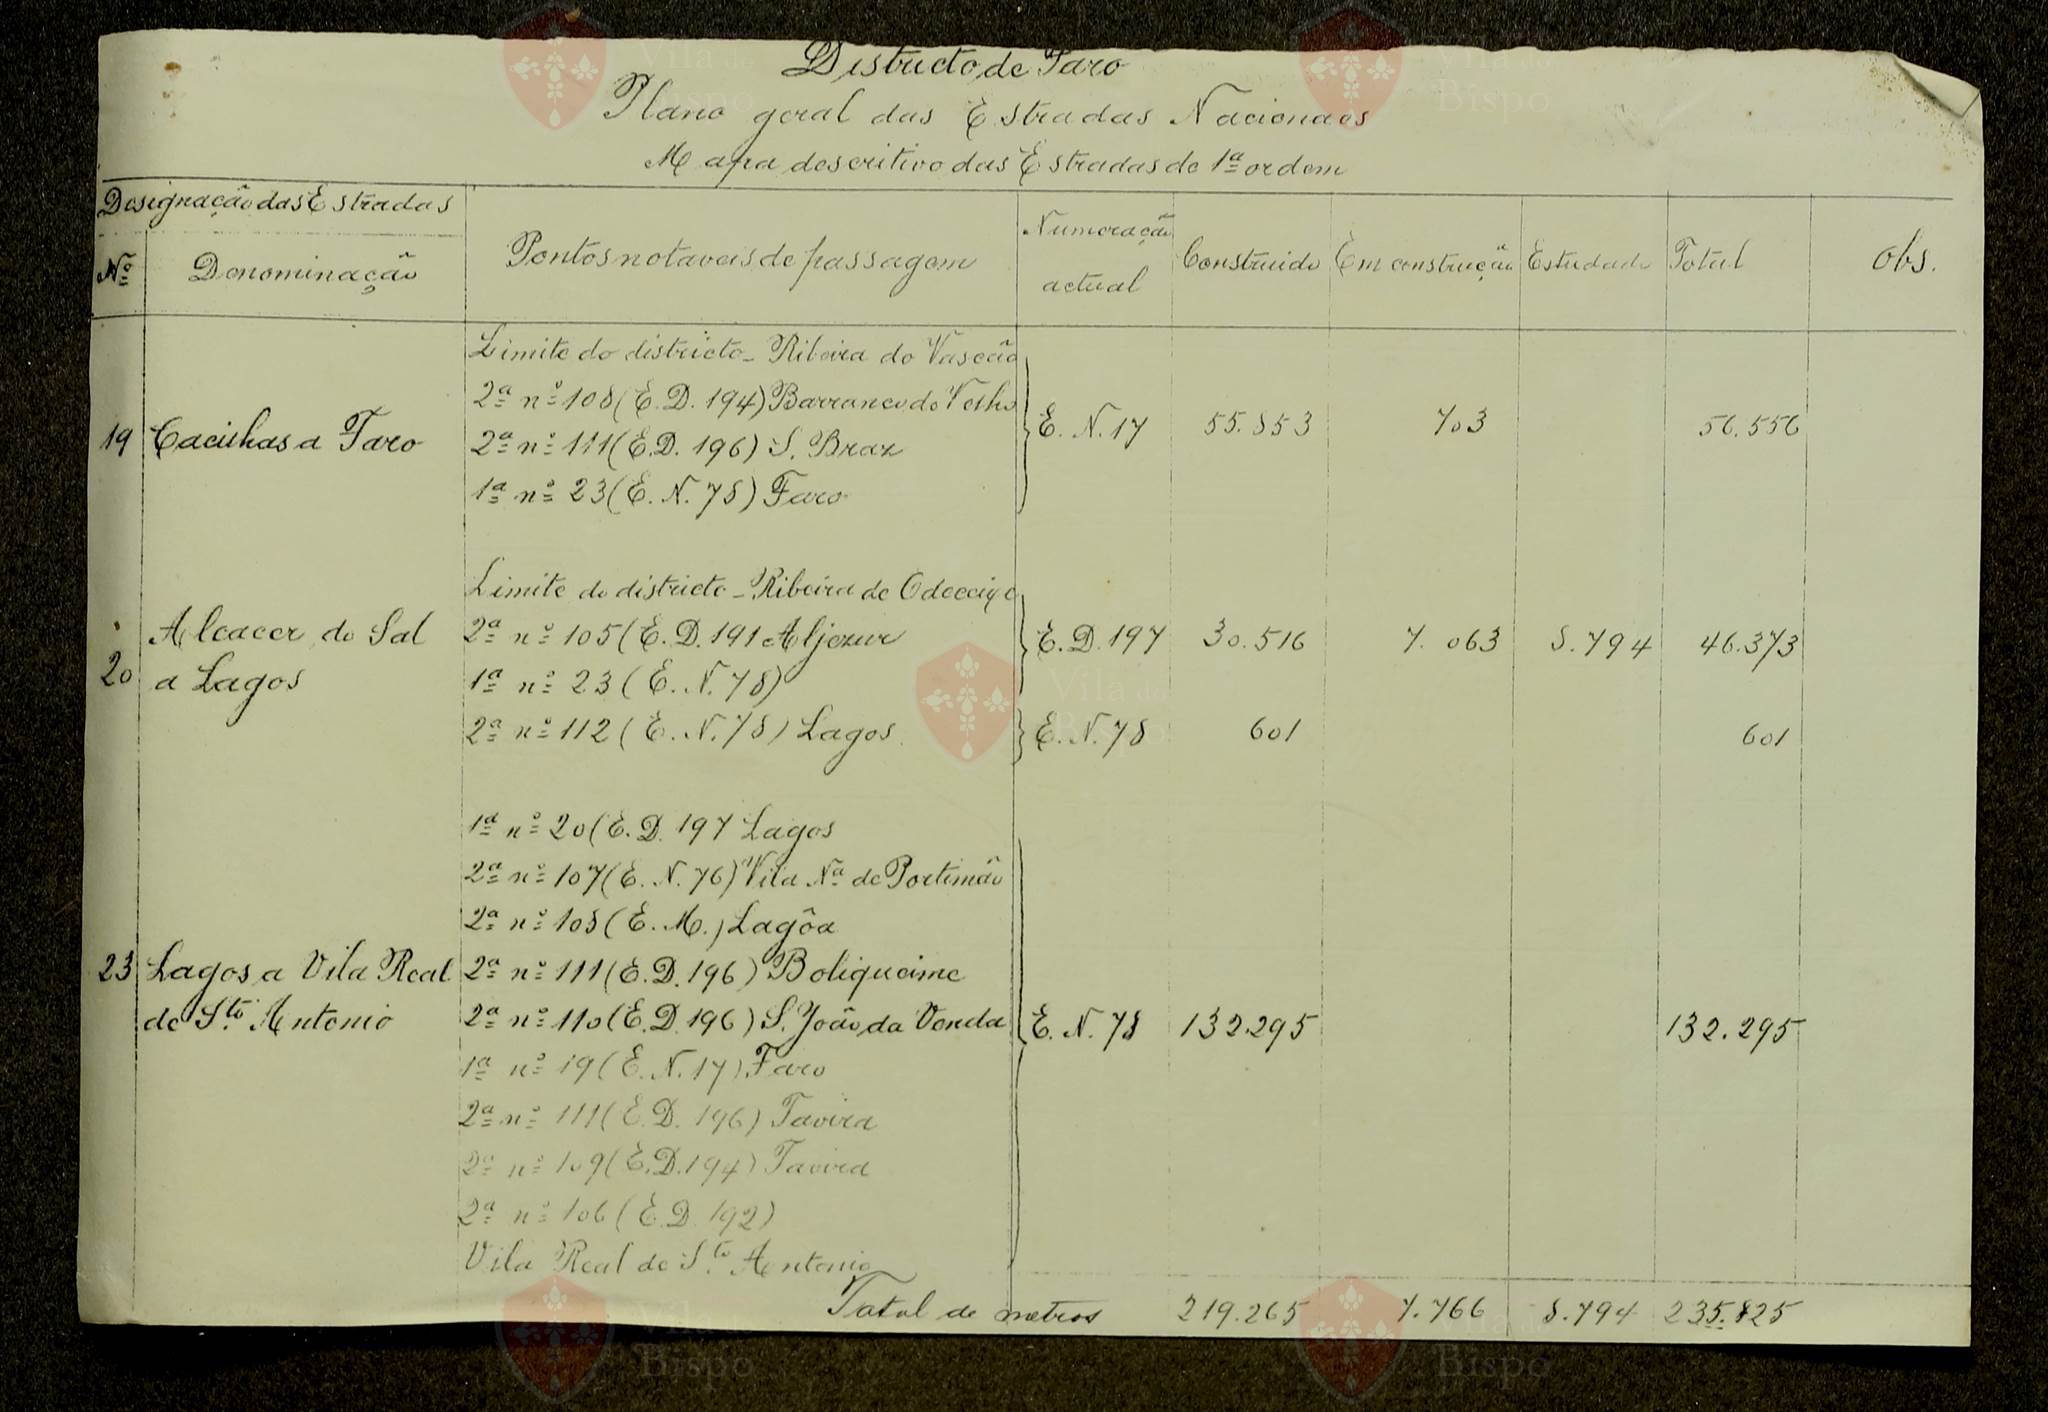 Districto de Faro
Plano geral das Estradas Nacionaes
Mapa descritivo das Estradas de 1ª ordem
Designação das Estradas
Nº Denominação Pontos notaveis de passagem Numeração actual Construido Em construção Estudado Total Obs.
Limite do districto - Ribeira do Vascão
2ª nº 108 (E. D. 194) Barranco do Velho
19 Cacilhas a Faro 2ª nº 111 (E. D. 196) S. Braz E. N. 17 55.853 703 56.556
1ª nº 23 (E. N. 78) Faro
Limite do districto - Ribeira de Odeceixe
20 Alcacer do Sal 2ª nº 105 (E. D. 191 Aljezur E. D. 197 30.516 7.063 8.794 46.373
a Lagos 1ª nº 23 (E. N. 78)
2ª nº 112 (E. N. 78) Lagos E. N. 78 601 601
1ª nº 20 (E. D. 197 Lagos
2ª nº 107 (E. N. 76) Vila Nª de Portimão
2ª nº 108 (E. M.) Lagôa
23 Lagos a Vila Real 2ª nº 111 (E. D. 196) Boliqueime
de S.to Antonio 2ª nº 110 (E. D. 196) S. João da Venda E. N. 78 132.295 132.295
1ª nº 19 (E. N. 17) Faro
2ª nº 111 (E. D. 196) Tavira
2ª nº 109 (E. D. 194) Tavira
2ª nº 106 (E. D. 192)
Vila Real de S.to Antonio
Total de metros 219.265 7.766 8.794 235.825
Vila do
Bispo
Vila do
Bispo
Vila do
Bispo
Vila do
Bispo
Vila do
Bispo